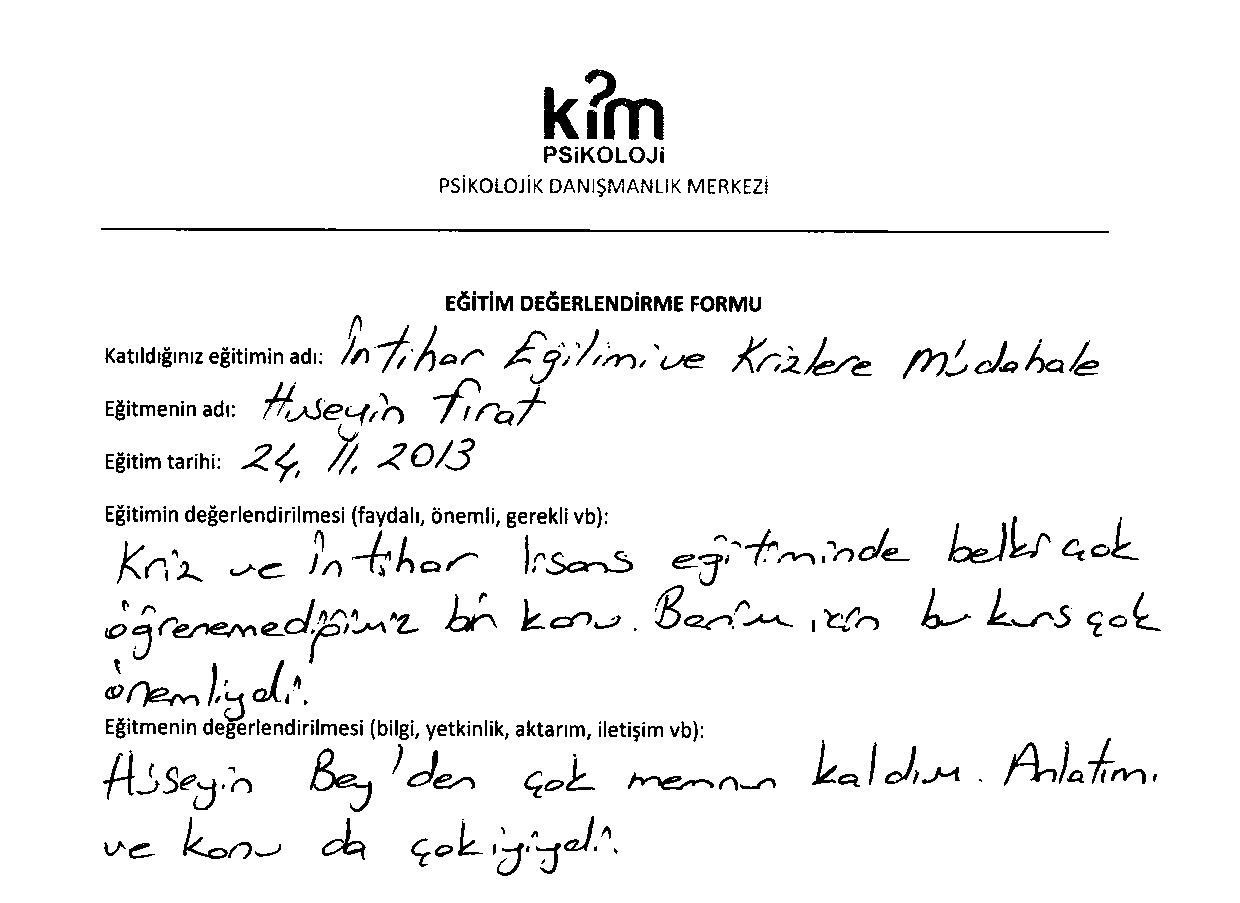 kim
PSiKOLOJi
PSİKOLOJİK DANIŞMANLIK MERKEZİ
EĞİTİM DEĞERLENDİRME FORMU
Katıldığınız eğitimin adı: İntihar Eğilimi ve Krizlere Müdahale
Eğitmenin adı: Huseyin Fırat
Eğitim tarihi: 24. 11. 2013
Eğitimin değerlendirilmesi (faydalı, önemli, gerekli vb):
Kriz ve İntihar lisans eğitiminde belki çok
öğrenemediğimiz bir konu. Benim için bu kurs çok
önemliydi.
Eğitmenin değerlendirilmesi (bilgi, yetkinlik, aktarım, iletişim vb):
Hüseyin Bey'den çok memnun kaldım. Anlatımı
ve konu da çok iyiydi.